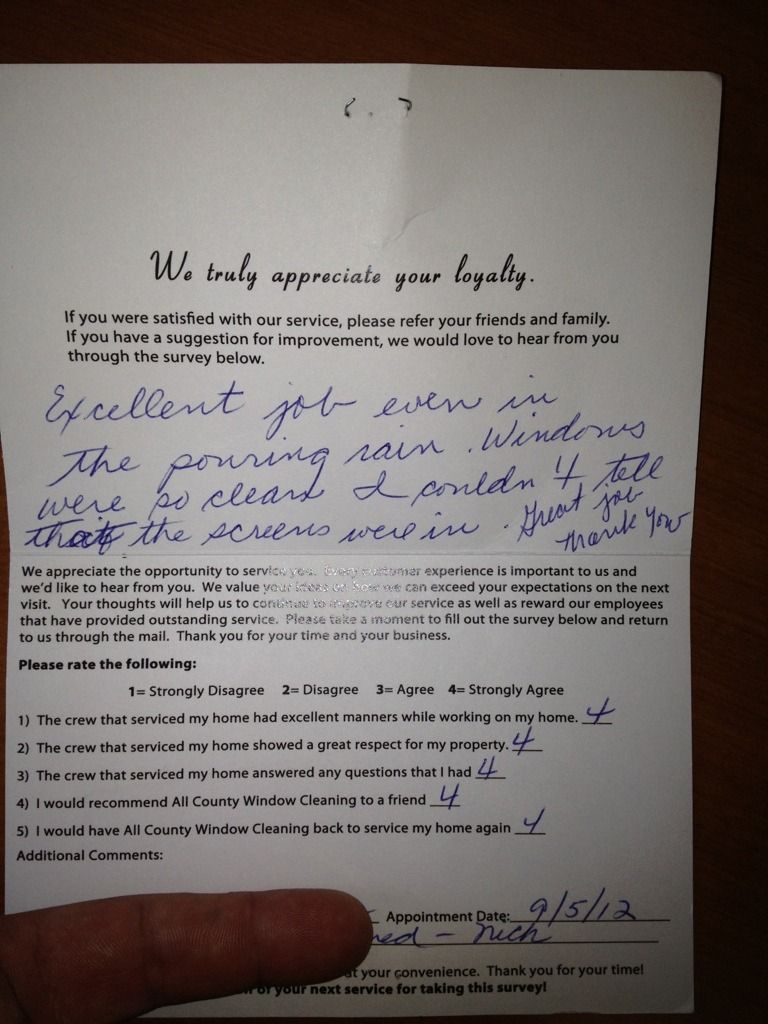 We truly appreciate your loyalty.
If you were satisfied with our service, please refer your friends and family.
If you have a suggestion for improvement, we would love to hear from you
through the survey below.
Excellent job even in
the pouring rain. Windows
were so clean I couldn't tell
that the screens were in. Great job
Thank You
We appreciate the opportunity to service you. Every customer experience is important to us and
we'd like to hear from you. We value your ideas on how we can exceed your expectations on the next
visit. Your thoughts will help us to continue to improve our service as well as reward our employees
that have provided outstanding service. Please take a moment to fill out the survey below and return
to us through the mail. Thank you for your time and your business.
Please rate the following:
1= Strongly Disagree 2= Disagree 3= Agree 4= Strongly Agree
1) The crew that serviced my home had excellent manners while working on my home. 4
2) The crew that serviced my home showed a great respect for my property. 4
3) The crew that serviced my home answered any questions that I had 4
4) I would recommend All County Window Cleaning to a friend 4
5) I would have All County Window Cleaning back to service my home again 4
Additional Comments:
Appointment Date: 9/5/12
- Nich
at your convenience. Thank you for your time!
of your next service for taking this survey!